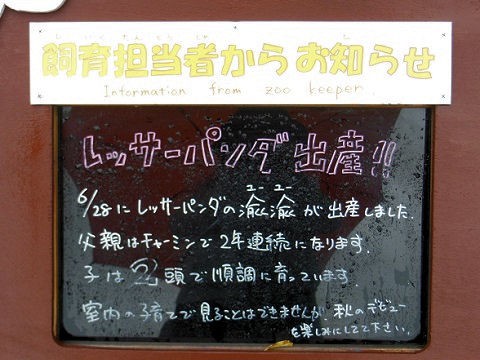 し いく たん とう しゃ し
飼育担当者からお知らせ
Information from zoo keeper.
レッサーパンダ出産!!
ユー ユー
6/28にレッサーパンダの渝渝が出産しました.
父親はチャーミンで2年連続になります.
子は2頭で順調に育っています.
室内の子育てで見ることはできませんが秋のデビュー
を楽しみにしてて下さい.